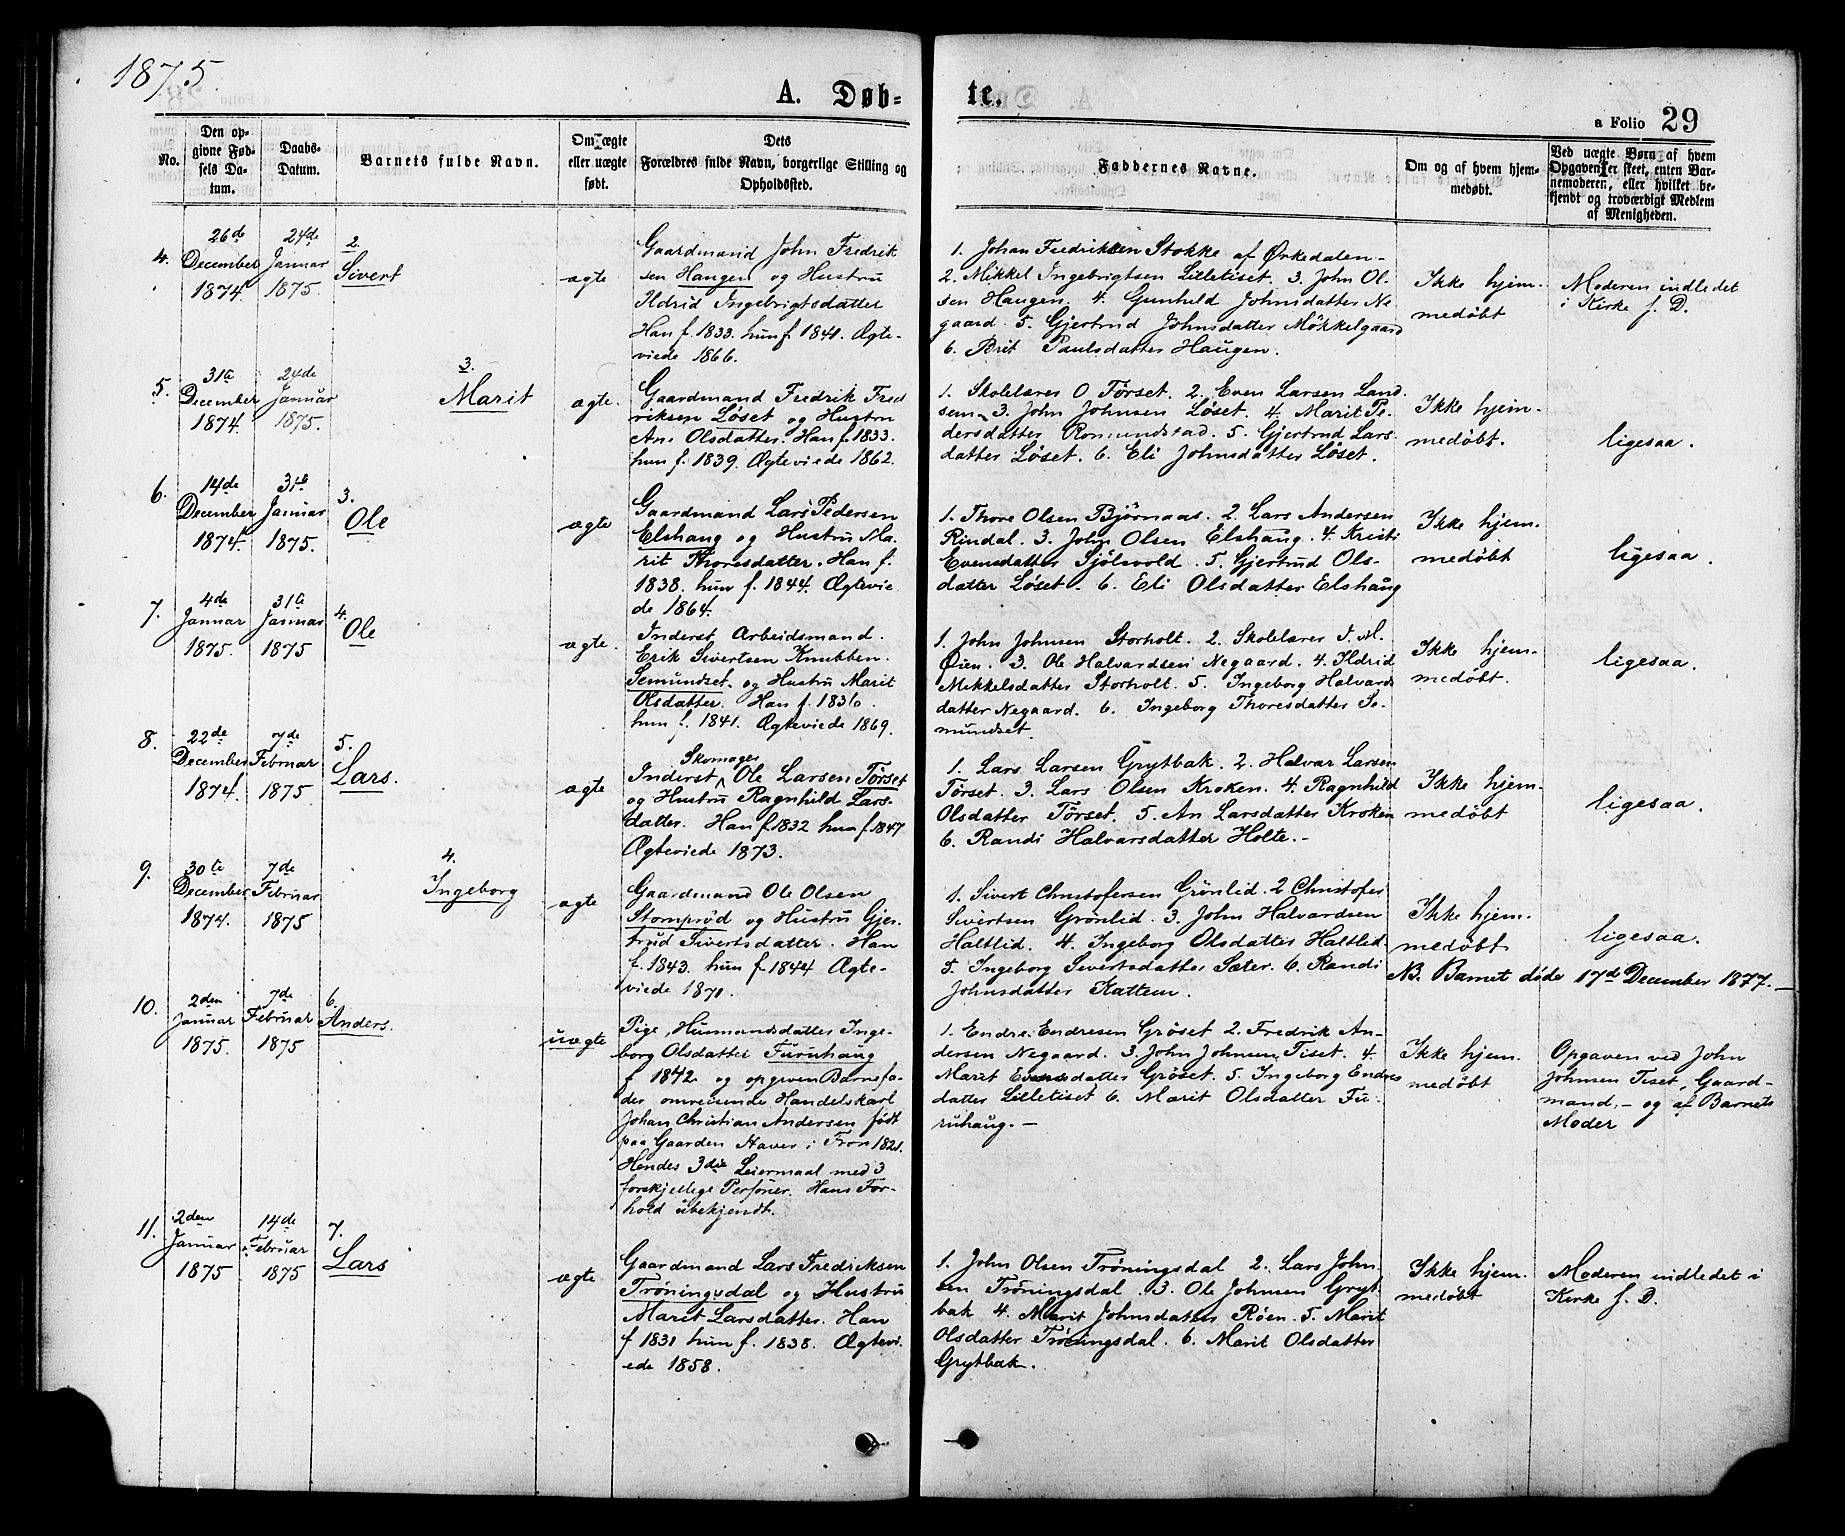 1875.
A. Døb-
te.
a Folio 29
No.
Den op-
givne Fød-
sels Da-
tum.
Daabs-
Datum.
Barnets fulde Navn.
Om ægte
eller uægte
født.
Dets
Forældres fulde Navn, borgerlige Stilling og
Opholdssted.
Faddernes Navne.
Om og af hvem hjem-
medøbt.
Ved uægte Børn af hvem
Opgaven er skeet, enten Bar-
nemoderen, eller hvilket be-
kjendt og troværdigt Medlem
af Menigheden.
4.
26de
December
1874.
24de
Januar
1875.
2.
Sivert
ægte
Gaardmand John Fredrik
sen Haugen og Hustru
Ildrid Ingebrigtsdatter
Han f. 1833. hun f. 1841. Ægte-
viede 1866.
1. Johan Fredriksen Stokke af Ørkedalen-
2. Mikkel Ingebrigtsen Lilletiset. 3. John Ol-
sen Haugen. 4. Gunhild Johnsdatter Ne
gaard. 5. Gjertrud Johnsdatter Møkkelgaard
6. Brit Paulsdatter Haugen.
Ikke hjem-
medøbt
Moderen indledet
i Kirke f. D.
5.
31te
December
1874.
24de
Januar
1875.
3.
Marit
ægte.
Gaardmand Fredrik Fred
riksen Løset og Hustru
Ane Olsdatter. Han f. 1833.
hun f. 1839. Ægteviede 1862.
1. Skolelærer O Tørset. 2. Even Larsen Land
sem. 3. John Johnsen Løset. 4. Marit Pe-
dersdatter Romundstad. 5. Gjertrud Lars
datter Løset. 6. Eli Johnsdatter Løset.
Ikke hjem-
medøbt.
ligesaa.
6.
14de
December
1874.
31te
Januar
1875.
3.
Ole
ægte
Gaardmand Lars Pedersen
Elshaug og Hustru Ma-
rit Thoresdatter. Han f.
1838. hun f. 1844. Ægtevie
de 1864.
1. Thore Olsen Bjørnaas. 2. Lars Andersen
Rindal. 3. John Olsen Elshaug. 4. Kristi
Evensdatter Sjølsvold. 5. Gjertrud Ols-
datter Løset. 6. Eli Olsdatter Elshaug
Ikke hjem.
medøbt
ligesaa.
7.
4de
Januar
1875.
31te
Januar
1875
4.
Ole
ægte.
Inderst Arbeidsmand.
Erik Sivertsen Knubben.
Semundset. og Hustru Marit
Olsdatter. Han f. 1836.
hun f. 1841. Ægteviede 1869.
1. John Johnsen Storholt. 2. Skolelærer J. M.
Øien. 3. Ole Halvardsen Negaard. 4. Ildrid
Mikkelsdatter Storholt. 5. Ingeborg Halvards
datter Negaard. 6. Ingeborg Thoresdatter Se-
mundset.
Ikke hjem-
medøbt.
ligesaa.
8.
22de
December
1874.
7de
Februar
1875
5.
Lars.
ægte
Skomager
Inderst Ole Larsen Tørset
og Hustru Ragnhild Lars-
datter. Han f. 1832 hun f. 1847
Ægteviede 1873.
1. Lars Larsen Grytbak. 2. Halvar Larsen
Tørset. 3. Lars Olsen Kroken. 4. Ragnhild
Olsdatter Tørset. 5. An Larsdatter Kroken
6. Randi Halvarsdatter Holte.-
Ikke hjem-
medøbt
ligesaa.
9.
30te
December
1874.
7de
Februar
1875
4.
Ingeborg
ægte
Gaardmand Ole Olsen
Stomprød og Hustru Gjer-
trud Sivertsdatter. Han
f. 1843. hun f. 1844 Ægte-
viede 1871.
1. Sivert Christofersen Grønlid. 2 Christofer
Sivertsen Grønlid. 3. John Halvardsen
Haltlid. 4. Ingeborg Olsdatter Haltlid
5. Ingeborg Sivertsdatter Sæter. 6. Randi
Johnsdatter Kattem.
Ikke hjem-
medøbt
ligesaa.
NB. Barnet døde 17de December 1877.
10.
2den
Januar
1875.
7de
Februar
1875
6.
Anders.
uægte
Pige, Husmandsdatter Inge-
borg Olsdatter Furuhaug
f. 1842 og opgiven Barnefa-
der omreisende Handelskarl
Johan Christian Andersen født
paa Gaarden Haver i Fron 1821.
Hendes 3die Leiermaal med 3
forskjellige Personer. Hans For-
hold ubekjendt.
1. Endre Endresen Grøset 2. Fredrik An-
dersen Negaard. 3. John Johnsen Tiset. 4.
Marit Evensdatter Grøset. 5. Ingeborg Endres
datter Lilletiset 6. Marit Olsdatter Fu-
ruhaug.-
Ikke hjem-
medøbt
Opgaven ved John
Johnsen Tiset, Gaard-
mand.- og af Barnets
Moder
11.
2den
Januar
1875
14de
Februar
1875
7.
Lars
ægte.
Gaardmand Lars Fredriksen
Trøningsdal og Hustru
Marit Larsdatter. Han
f 1831 hun f. 1838. Ægtevi-
ede 1858.
1. John Olsen Trøningsdal 2. Lars John
sen Trøningsdal. 3. Ole Johnsen Gryt
bak 4. Marit Johnsdatter Røen. 5. Marit
Olsdatter Trøningsdal. 6. Marit Olsdatter
Grytbak.
Ikke hjem-
medøbt
Moderen indledet i
Kirke f. D.